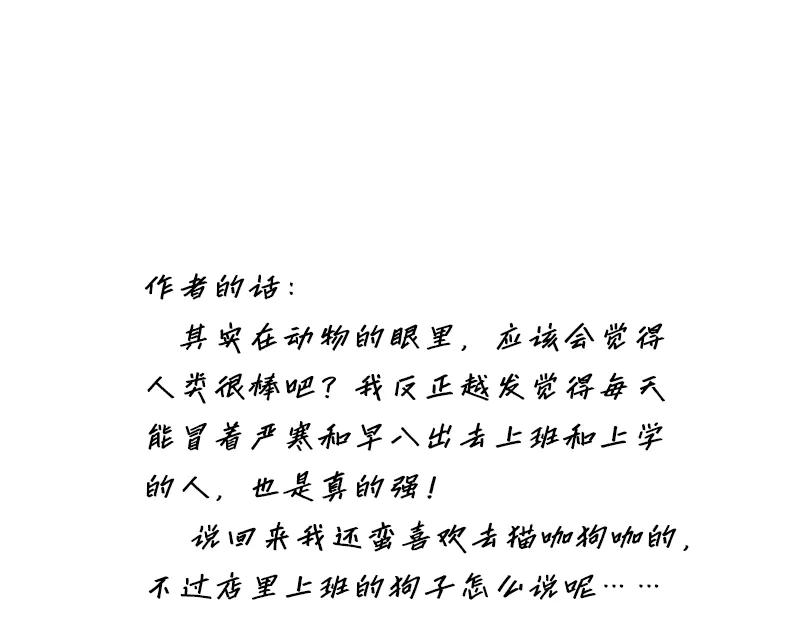 作者的话：
其实在动物的眼里，应该会觉得
人类很棒吧？我反正越发觉得每天
能冒着严寒和早八出去上班和上学
的人，也是真的强！
说回来我还蛮喜欢去猫咖狗咖的，
不过店里上班的狗子怎么说呢……